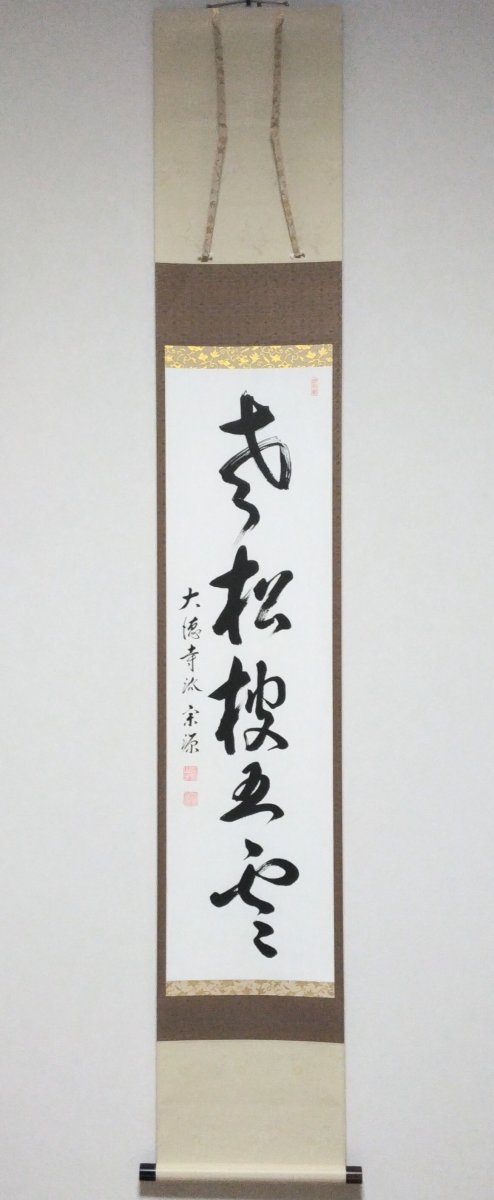 老松棲五雲
大徳寺派 宗源